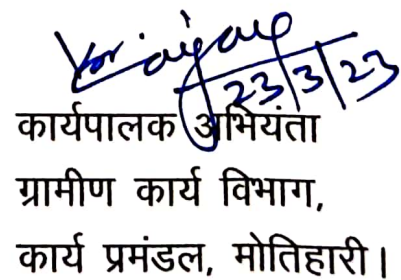 23/3/23
कार्यपालक अभियंता
ग्रामीण कार्य विभाग,
कार्य प्रमंडल, मोतिहारी।